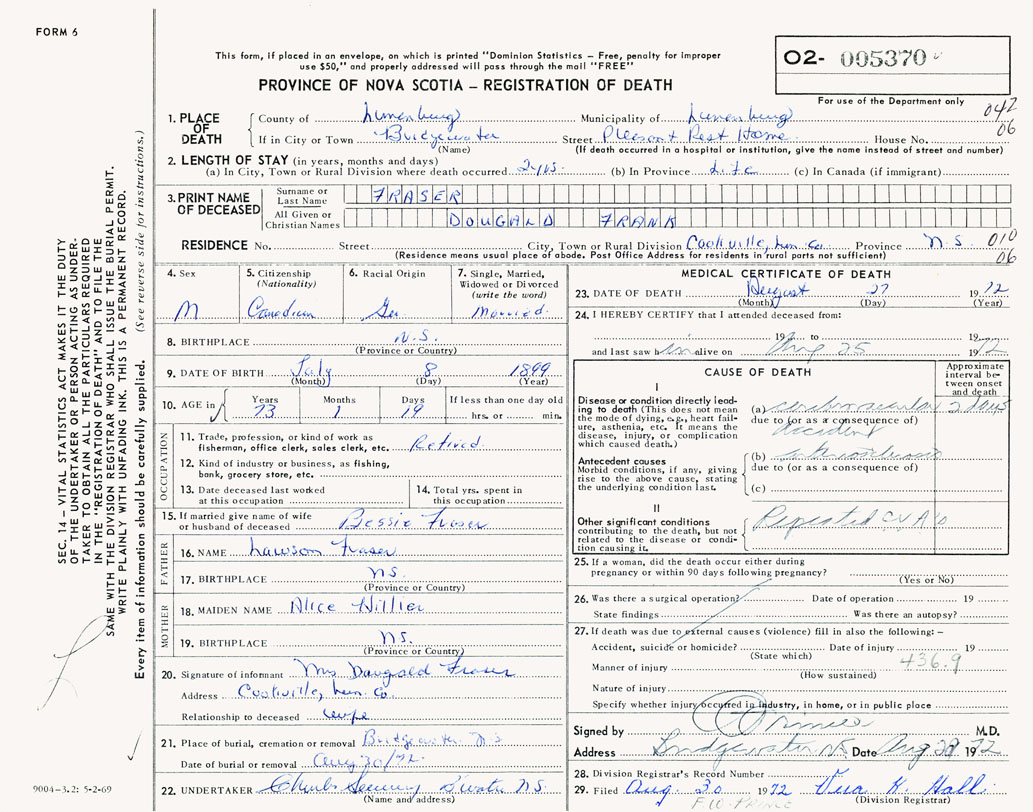 FORM 6
This form, if placed in an envelope, on which is printed "Dominion Statistics – Free, penalty for improper
use $50," and properly addressed will pass through the mail "FREE"
PROVINCE OF NOVA SCOTIA – REGISTRATION OF DEATH
O2- 005370
For use of the Department only
042
06
1. PLACE OF DEATH
County of Lunenburg Municipality of Lunenburg
If in City or Town Bridgewater Street Pleasant Rest Home House No.
(Name) (If death occurred in a hospital or institution, give the name instead of street and number)
2. LENGTH OF STAY (in years, months and days)
(a) In City, Town or Rural Division where death occurred 2 yrs. (b) In Province Life (c) In Canada (if immigrant)
3. PRINT NAME OF DECEASED
Surname or Last Name FRASER
All Given or Christian Names DOUGALD FRANK
RESIDENCE No. Street City, Town or Rural Division Cookville, Lun. Co. Province N.S. 010
06
(Residence means usual place of abode. Post Office Address for residents in rural parts not sufficient)
4. Sex
M
5. Citizenship
(Nationality)
Canadian
6. Racial Origin
Ger.
7. Single, Married,
Widowed or Divorced
(write the word)
Married.
8. BIRTHPLACE N.S.
(Province or Country)
9. DATE OF BIRTH July 8 1899
(Month) (Day) (Year)
10. AGE in Years Months Days If less than one day old
73 1 19 hrs. or min.
OCCUPATION
11. Trade, profession, or kind of work as
fisherman, office clerk, sales clerk, etc. Retired.
12. Kind of industry or business, as fishing,
bank, grocery store, etc.
13. Date deceased last worked
at this occupation
14. Total yrs. spent in
this occupation
15. If married give name of wife
or husband of deceased Bessie Fraser
FATHER
16. NAME Lawson Fraser
17. BIRTHPLACE N.S.
(Province or Country)
MOTHER
18. MAIDEN NAME Alice Hillier
19. BIRTHPLACE N.S.
(Province or Country)
20. Signature of informant Mrs Daugald Fraser
Address Cookville, Lun. Co.
Relationship to deceased wife
21. Place of burial, cremation or removal Bridgewater N.S.
Date of burial or removal Aug 30/72
22. UNDERTAKER B'water N.S.
(Name and address)
MEDICAL CERTIFICATE OF DEATH
23. DATE OF DEATH August 27 1972
(Month) (Day) (Year)
24. I HEREBY CERTIFY that I attended deceased from:
19 to 19
and last saw him alive on Aug 25 1972
CAUSE OF DEATH
Approximate
interval be-
tween onset
and death
I
Disease or condition directly lead-
ing to death (This does not mean
the mode of dying, e.g., heart failure,
asthenia, etc. It means the
disease, injury, or complication
which caused death.)
(a) cerebrovascular 2 days
due to (or as a consequence of)
accident
Antecedent causes
Morbid conditions, if any, giving
rise to the above cause, stating
the underlying condition last.
(b) arteriosclerosis
due to (or as a consequence of)
(c)
II
Other significant conditions
contributing to the death, but not
related to the disease or condi-
tion causing it.
Repeated CVA's
25. If a woman, did the death occur either during
pregnancy or within 90 days following pregnancy?
(Yes or No)
26. Was there a surgical operation? Date of operation 19
State findings Was there an autopsy?
27. If death was due to external causes (violence) fill in also the following: –
Accident, suicide or homicide? Date of injury 19
(State which)
436.9
Manner of injury
(How sustained)
Nature of injury
Specify whether injury occurred in industry, in home, or in public place
Signed by Prince M.D.
Address Bridgewater NS Date Aug 28 1972
28. Division Registrar's Record Number
29. Filed Aug. 30 1972 K. Hall
(Division Registrar)
F.W. PRINCE
SEC. 14 – VITAL STATISTICS ACT MAKES IT THE DUTY
OF THE UNDERTAKER OR PERSON ACTING AS UNDER-
TAKER TO OBTAIN ALL THE PARTICULARS REQUIRED
IN THE "REGISTRATION OF DEATH" AND TO FILE THE
SAME WITH THE DIVISION REGISTRAR WHO SHALL ISSUE THE BURIAL PERMIT.
WRITE PLAINLY WITH UNFADING INK. THIS IS A PERMANENT RECORD.
Every item of information should be carefully supplied. (See reverse side for instructions.)
9004–3.2: 5-2-69